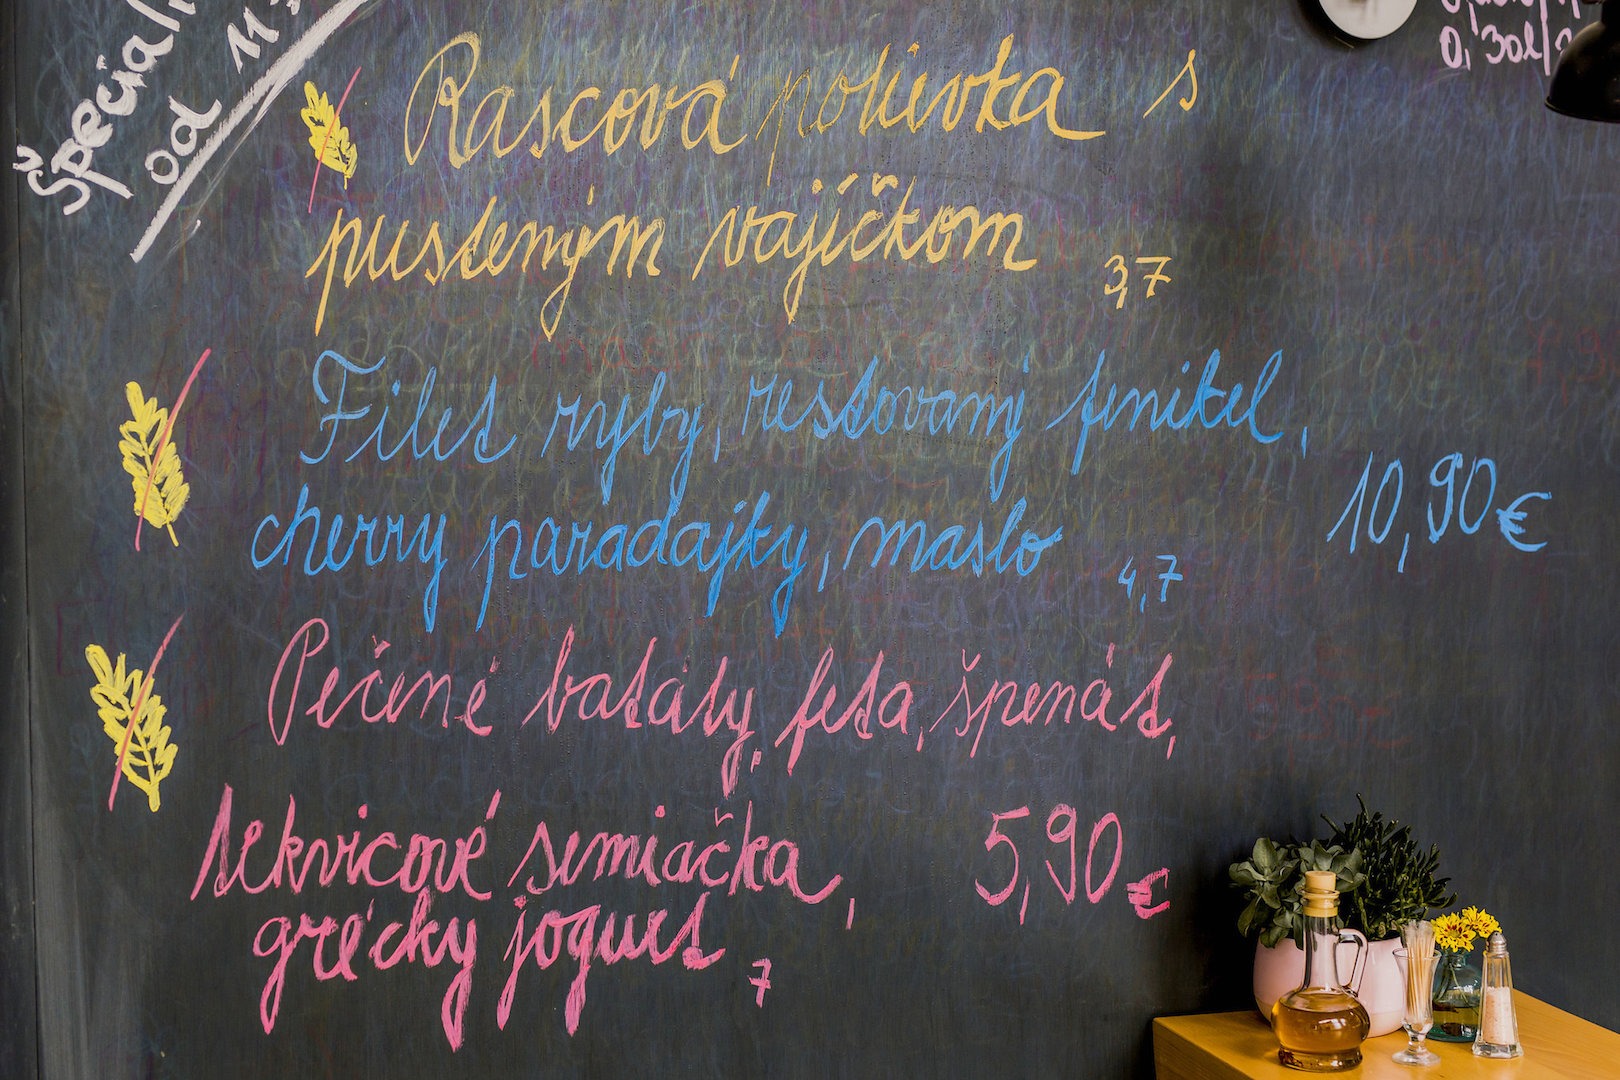 od 11
0,30l/
Rascová polievka s
pusteným vajíčkom 3,7
Filet ryby, restovaný fenikel,
cherry paradajky, maslo 4,7
10,90€
Pečené batáty, feta, špenát,
tekvicové semiačka, 5,90€
grécky jogurt 7